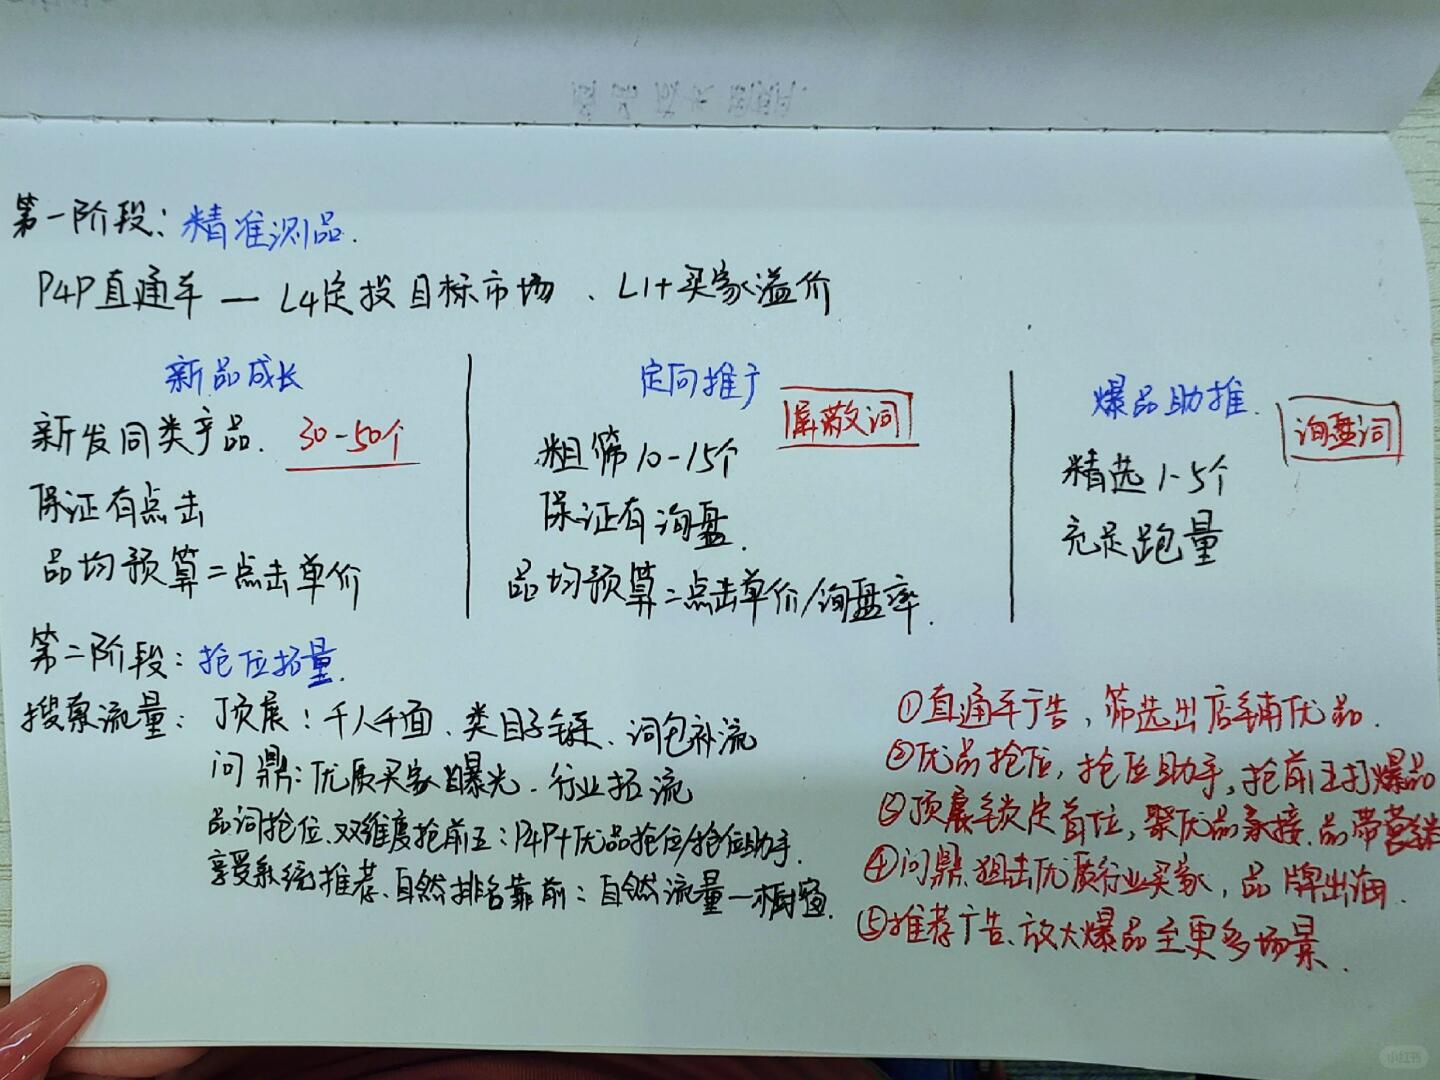 第一阶段：精准测品.
P4P直通车 — L4定投目标市场、L1+买家溢价
新品成长
新发同类产品. 30-50个
保证有点击
品均预算=点击单价
定向推广
屏蔽词
粗筛10-15个
保证有询盘.
品均预算=点击单价/询盘率.
爆品助推.
询盘词
精选1-5个
充足跑量
第二阶段：抢位拓量.
搜索流量：顶展：千人千面、类目子链、词包补流
问鼎：优质买家曝光、行业拓流
品词抢位、双维度抢前五：P4P+优品抢位/抢位助手.
享受系统推荐、自然排名靠前：自然流量—橱窗.
①直通车广告，筛选出店铺优品.
②优品抢位，抢位助手，抢前五打爆品
③顶展锁定首位，聚优品承接、品带营销
④问鼎狙击优质行业买家，品牌出海.
⑤推荐广告、放大爆品至更多场景.
小红书